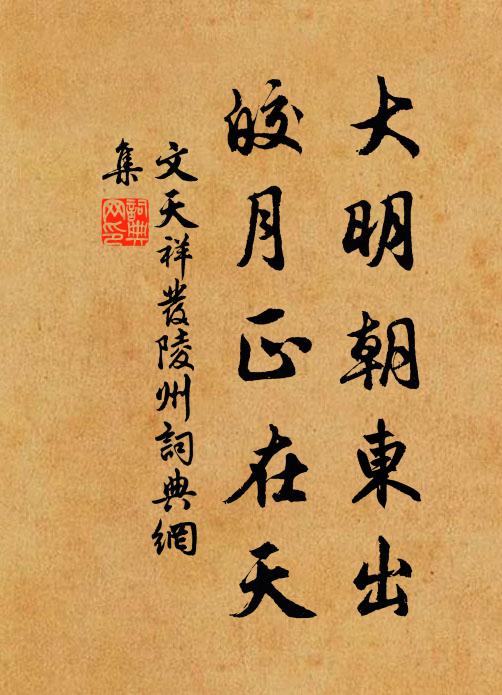 大明朝東出
皎月正在天
文天祥發陵州詞典網
集
詞典網印